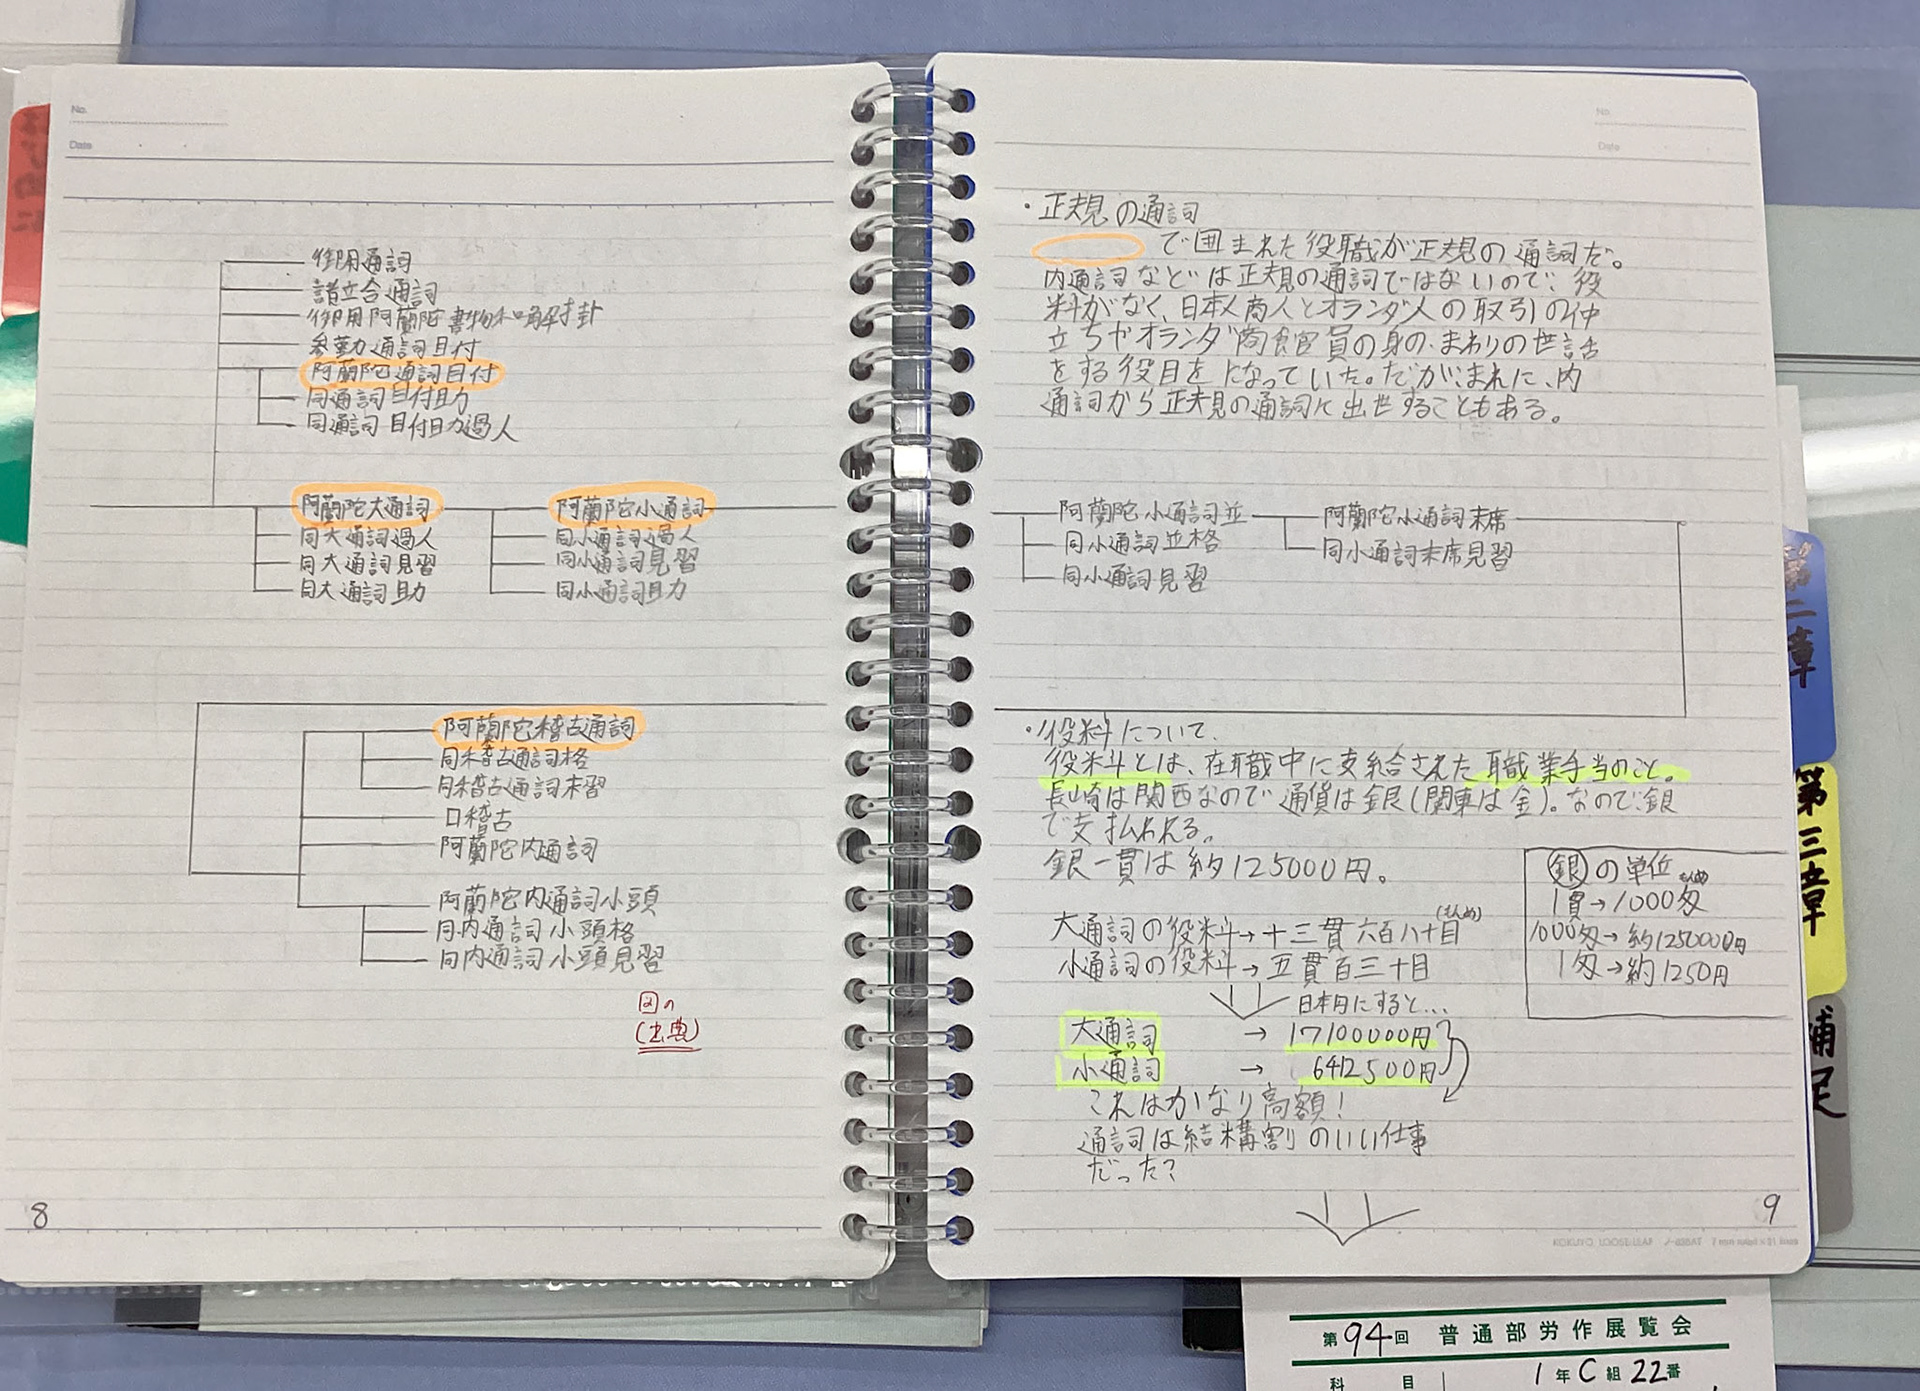 No.
Date
御用通詞
諸立合通詞
御用阿蘭陀書物和解掛
参勤通詞目付
阿蘭陀通詞目付
同通詞目付助
同通詞目付助過人
阿蘭陀大通詞
同大通詞過人
同大通詞見習
同大通詞助
阿蘭陀小通詞
同小通詞過人
同小通詞見習
同小通詞助
阿蘭陀稽古通詞
同稽古通詞格
同稽古通詞末習
口稽古
阿蘭陀内通詞
阿蘭陀内通詞小頭
同内通詞小頭格
同内通詞小頭見習
図の
(出典)
8
No.
Date
・正規の通詞
で囲まれた役職が正規の通詞だ。
内通詞などは正規の通詞ではないので、役
料がなく、日本人商人とオランダ人の取引の仲
立ちやオランダ商館員の身のまわりの世話
をする役目をになっていた。だが、まれに、内
通詞から正規の通詞に出世することもある。
阿蘭陀小通詞並
同小通詞並格
同小通詞見習
阿蘭陀小通詞末席
同小通詞末席見習
・役料について
役料とは、在職中に支給された職業手当のこと。
長崎は関西なので通貨は銀(関東は金)。なので、銀
で支払われる。
銀一貫は約125000円。
大通詞の役料→十三貫六百八十目(もんめ)
小通詞の役料→五貫百三十目
日本円にすると…
大通詞→17100000円
小通詞→6412500円
これはかなり高額!
通詞は結構割のいい仕事
だった?
銀の単位
1貫→1000匁(もんめ)
1000匁→約1250000円
1匁→約1250円
9
第二章
第三章
補足
第94回 普通部労作展覧会
科目
1年C組22番